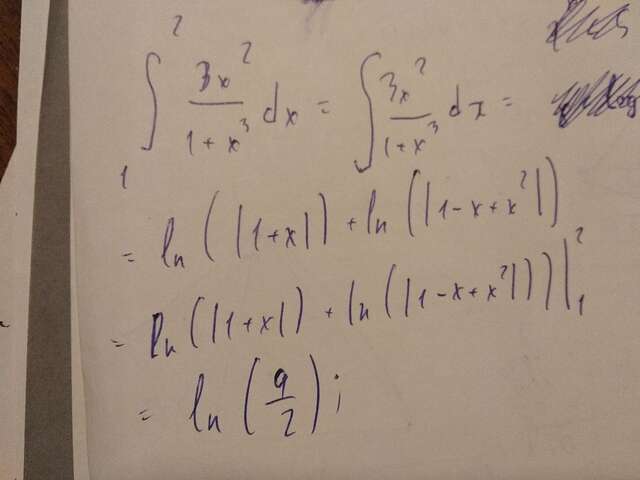 ∫₁² 3x²/(1+x³) dx = ∫ 3x²/(1+x³) dx =
= ln(|1+x|) + ln(|1-x+x²|)
= ln(|1+x|) + ln(|1-x+x²|))|₁²
= ln(9/2);